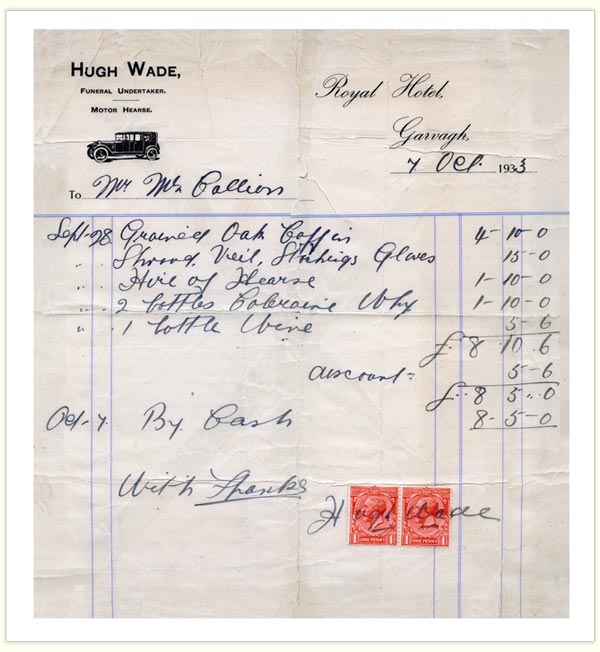 HUGH WADE,
FUNERAL UNDERTAKER.
MOTOR HEARSE.
Royal Hotel,
Garvagh,
7 Oct. 1933
To Mr
Sept-28 Grained Oak Coffin 4-10-0
" Shroud, Veil, Stockings Gloves 15-0
" Hire of Hearse 1-10-0
" 2 bottles Colraine Why 1-10-0
" 1 bottle Wine 5-6
£ 8 10 6
discount- 5-6
£ 8 5 " 0
Oct-7. By Cash 8-5-0
With Thanks
Hugh Wade
1 ONE PENNY 1
1 ONE PENNY 1